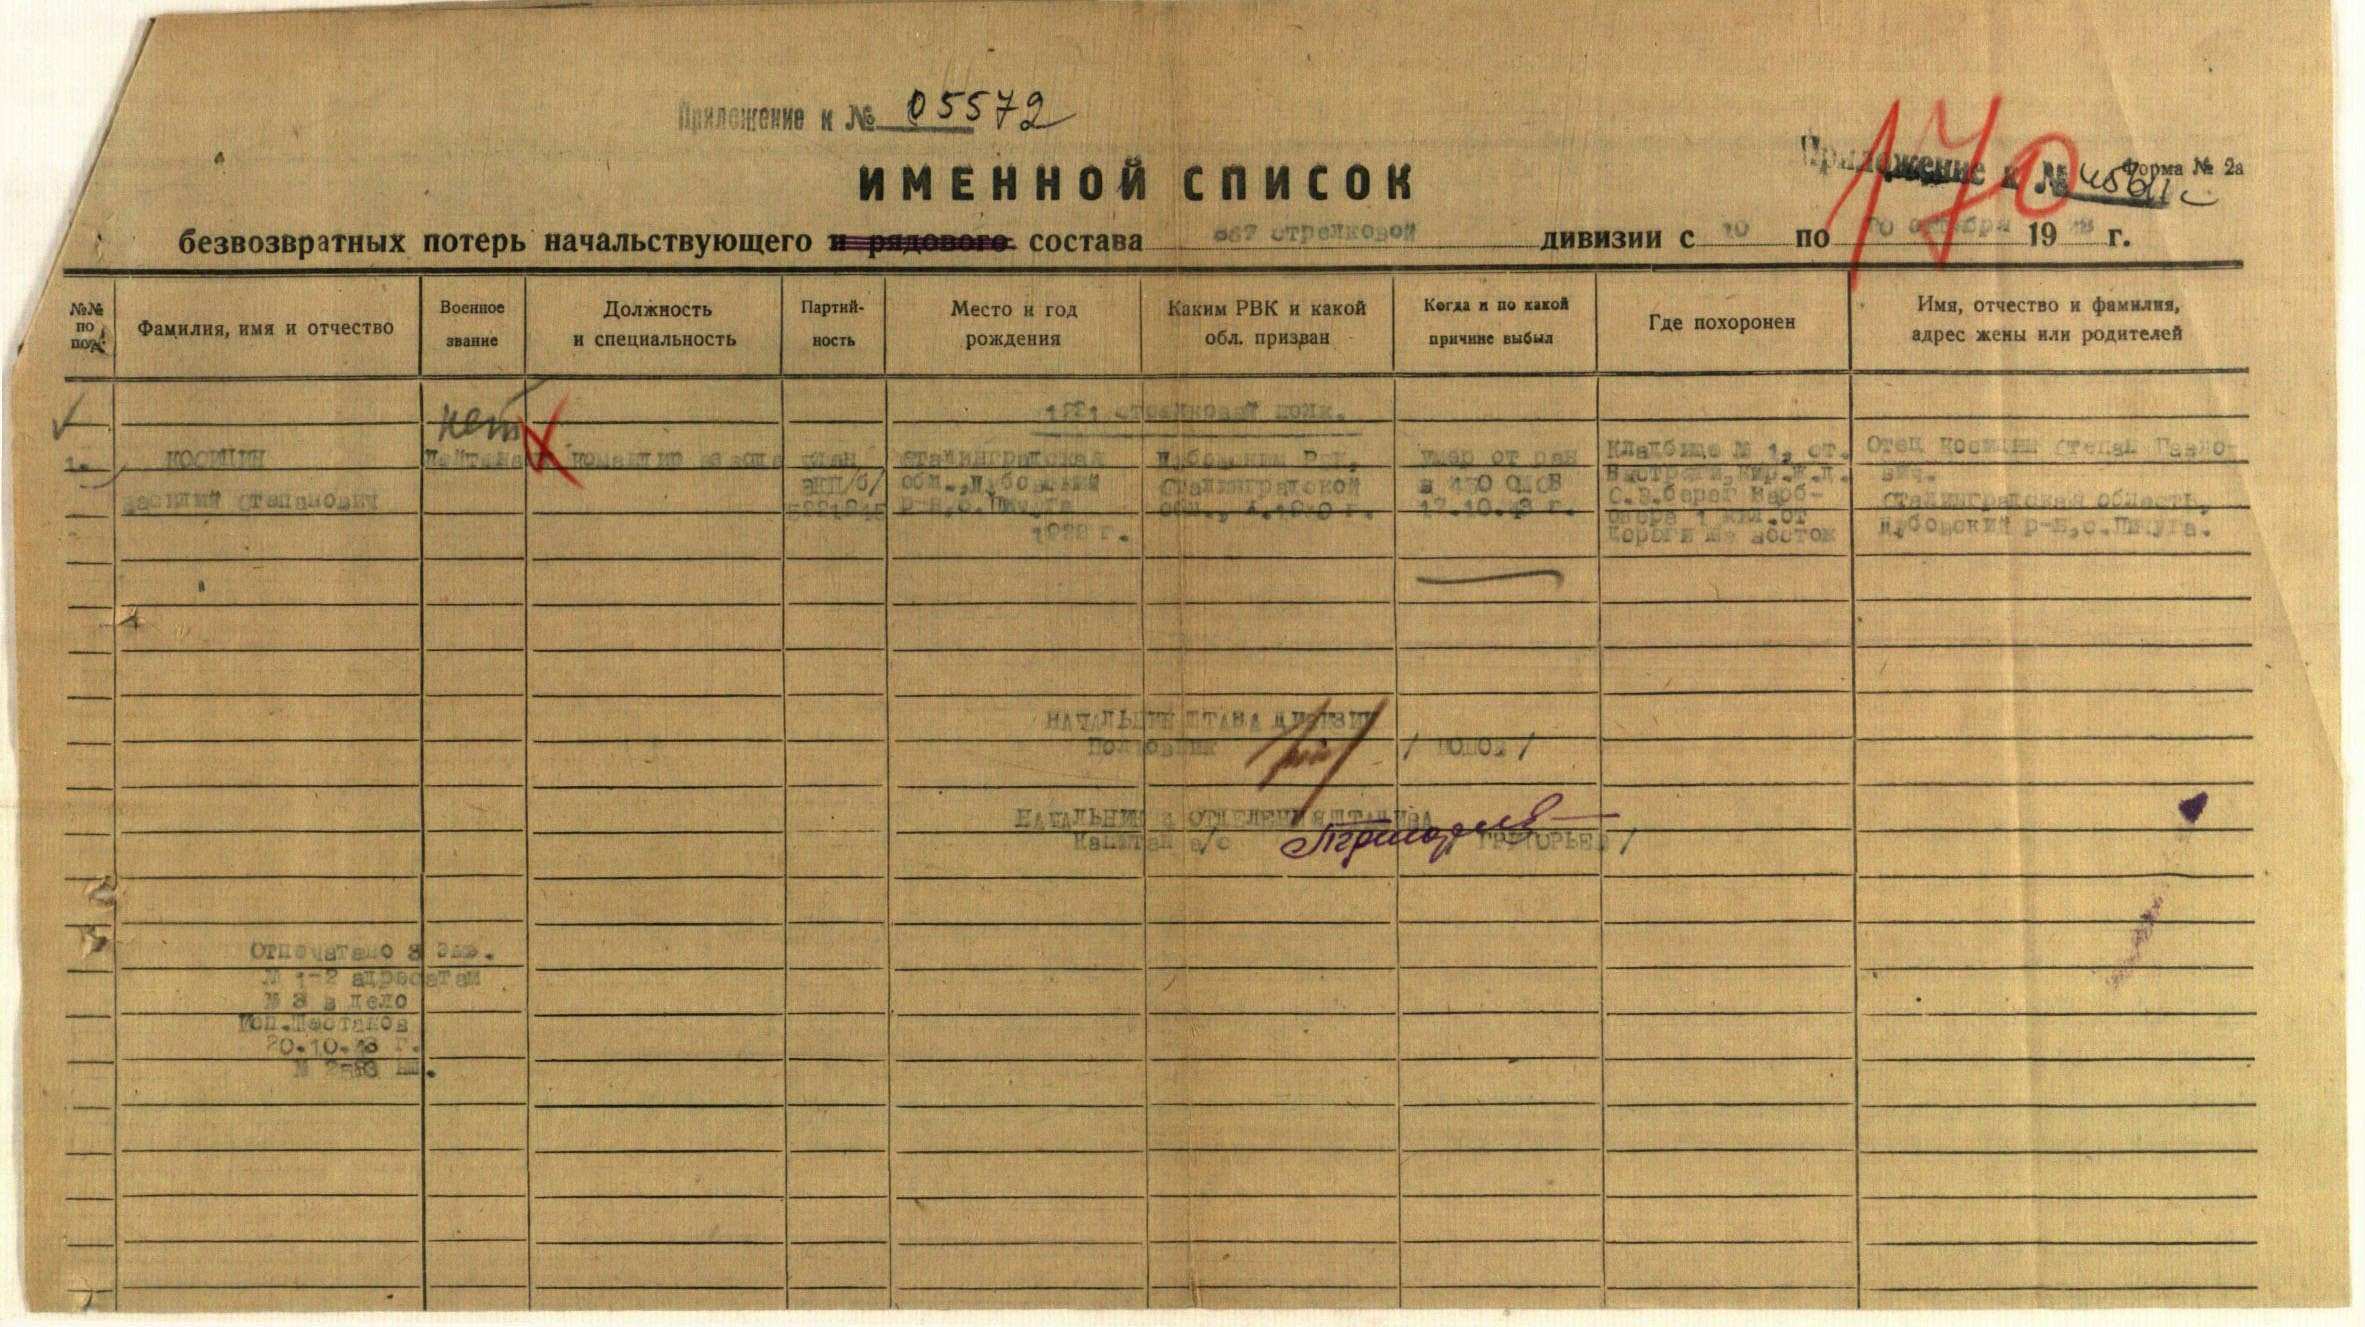 Приложение к № 05572
ИМЕННОЙ СПИСОК
Приложение к №
Форма № 2а
170
безвозвратных потерь начальствующего и рядового состава стрелковой дивизии с 10 по 19 г.
№№ по пор.
Фамилия, имя и отчество
Военное звание
Должность и специальность
Партий-ность
Место и год рождения
Каким РВК и какой обл. призван
Когда и по какой причине выбыл
Где похоронен
Имя, отчество и фамилия, адрес жены или родителей
нет
стрелковый полк.
1. КОСИЦИН
Василий Степанович
Лейтенант
командир взвода
член
ВКП/б/
Сталинградская
обл., Дубовский
р-н, с.
г.
Дубовским РВК,
Сталинградской
обл., г.
умер от ран
в
17.10.43 г.
Кладбище № 1, ст.
С.В.берег
1 клм.от
дороги на восток
Отец Косицин Степан
вич.
Сталинградская область,
Дубовский р-н,с.Пичуга.
НАЧАЛЬНИК ШТАБА ДИВИЗИИ
Полковник / ПОПОВ /
НАЧАЛЬНИК ОТДЕЛЕНИЯ ШТАДИВА
Капитан а/с ГРИГОРЬЕВ /
Отпечатано 3 экз.
№ 1-2 адресатам
№ 3 в дело
Исп.Шестаков
20.10.43 г.
№